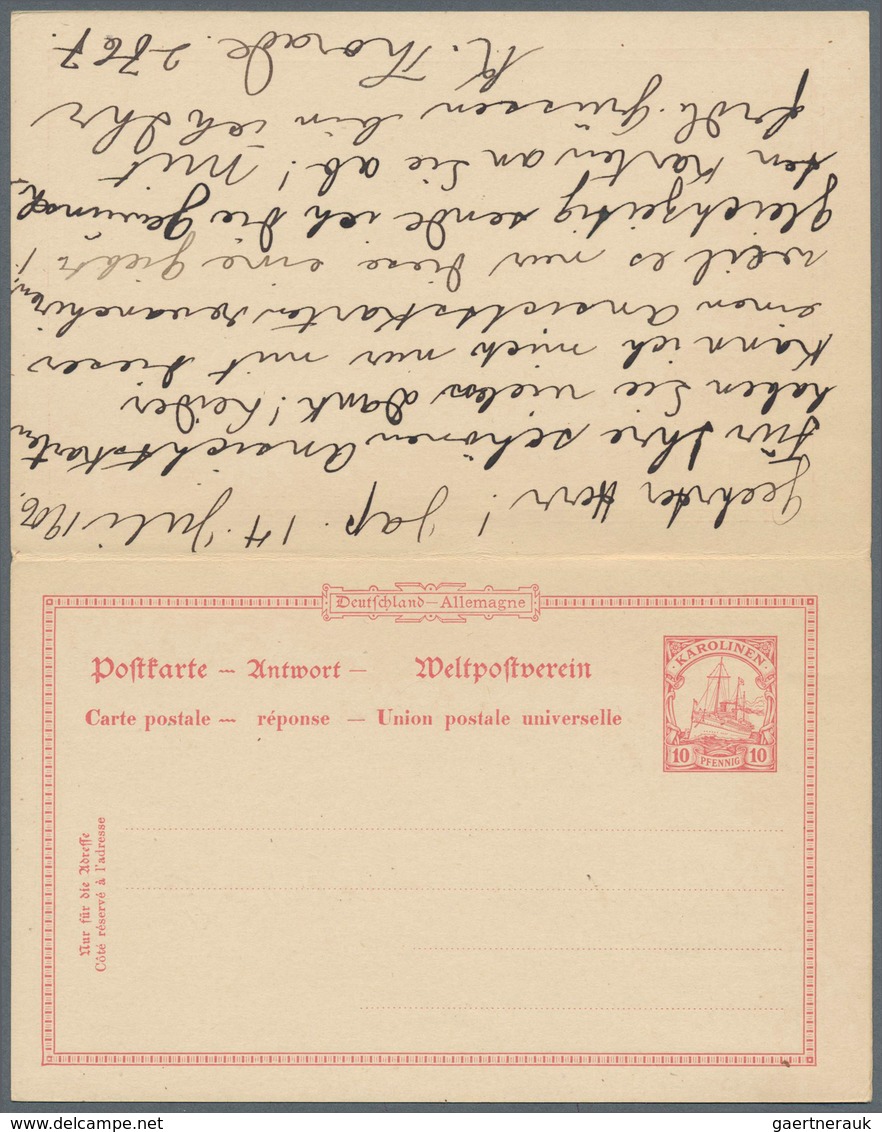 Geehrter Herr! Jap. 14. Juli 1906.
Für Ihre schönen Ansichtskarten
haben Sie vielen Dank! Leider
kann ich mich nur mit dieser
einen Ansichtskarte revanchiren,
weil es nur diese eine giebt!
Gleichzeitig sende ich die gewünsch-
ten Karten an Sie ab! Mit
frdl. Grüssen bin ich Ihr
K. Thorade
Deutschland—Allemagne
Postkarte — Antwort — Weltpostverein
Carte postale — réponse — Union postale universelle
KAROLINEN
10 PFENNIG 10
Nur für die Adresse
Côté réservé à l'adresse
www.delcampe.net
gaertnerauk